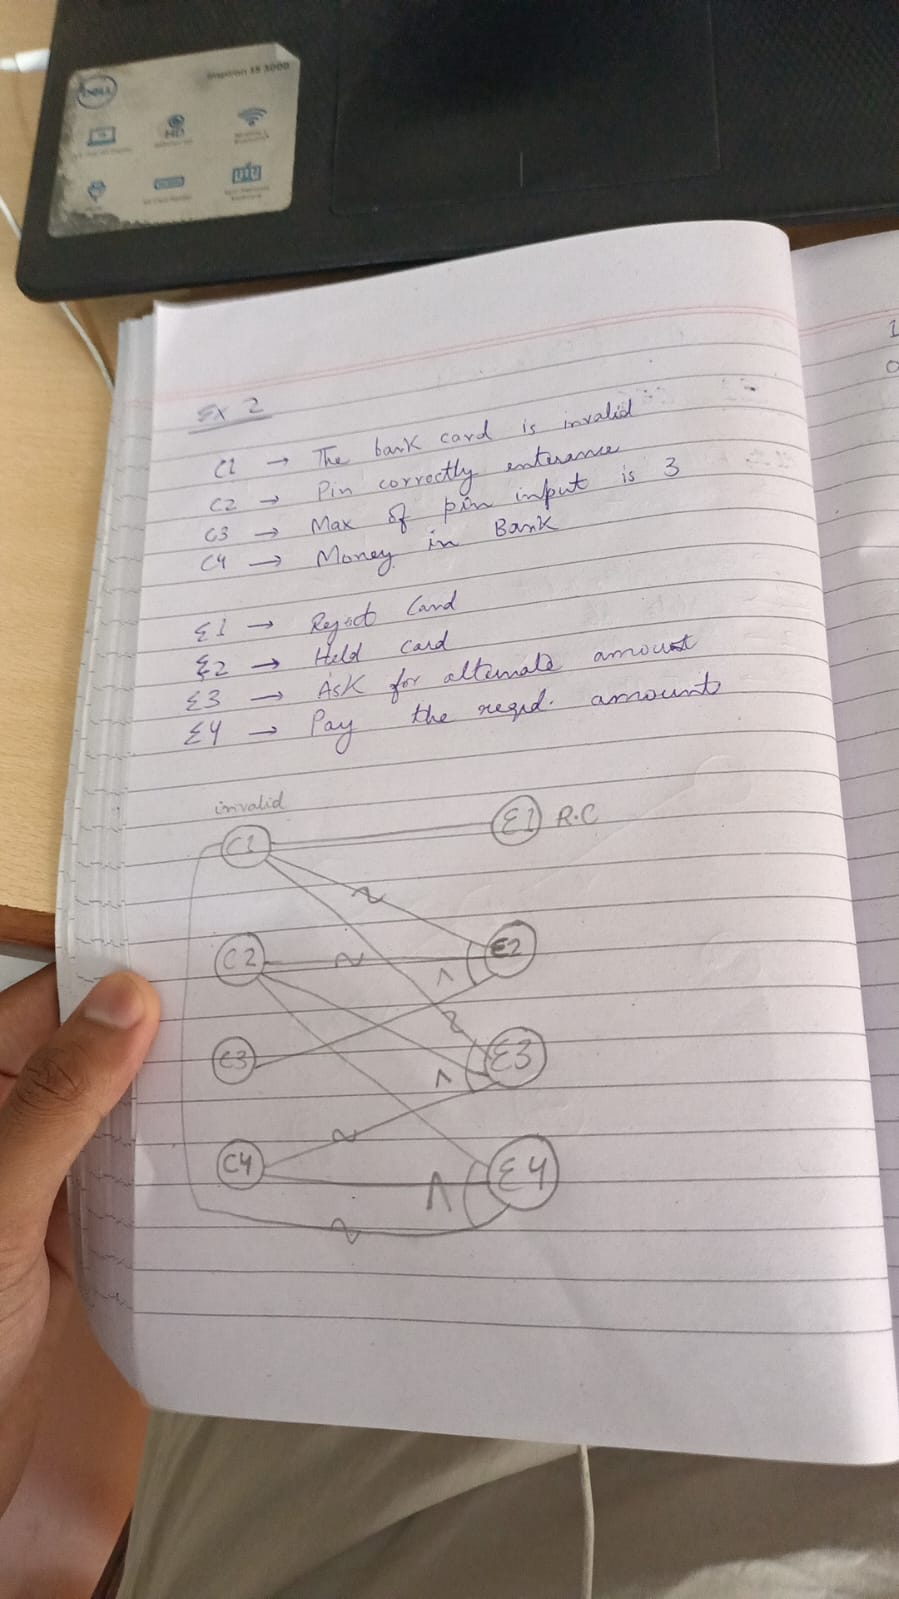 DELL
Inspiron 15 3000
HD
Ex 2
C1 → The bank card is invalid
C2 → Pin correctly enterance
C3 → Max of pin input is 3
C4 → Money in Bank
E1 → Reject Card
E2 → Held card
E3 → Ask for alternate amount
E4 → Pay the reqd. amount
invalid
C1 E1 R.C
~
C2 ~ ^ E2
~
C3 ^ E3
~
C4 ^ E4
~
1